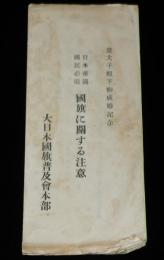 皇太子殿下御成婚記念
日本帝國
國民必須
國旗に關する注意
大日本國旗普及會本部